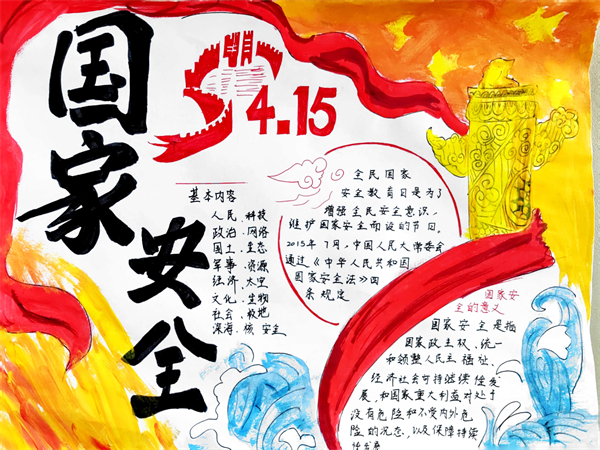 国家安全
4.15
基本内容
人民、科技
政治、网络
国土、生态
军事、资源
经济、太空
文化、生物
社会、极地
深海、核 安全
全民国家
安全教育日是为了
增强全民安全意识，
维护国家安全而设的节日。
2015年7月，中国人民大常委会
通过《中华人民共和国
国家安全法》四
条规定
国家安
全的意义
国家安全是指
国家政主权、统一
和领整人民主福祉、
经济社会可持继续性发
展，和国家重大利益对处于
没有危险和不受内外危
险的况态，以及保障持续